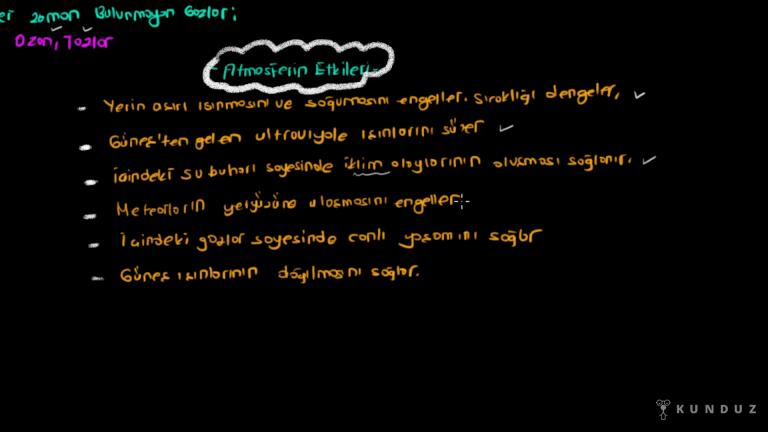 er zaman Bulunmayan Gazlar;
Ozon, Tozlar
- Atmosferin Etkileri -
- Yerin aşırı ısınmasını ve soğumasını engeller. Sıcaklığı dengeler. ✓
- Güneş'ten gelen ultraviyole ışınlarını süzer ✓
- İçindeki su buharı sayesinde iklim olaylarının oluşması sağlanır. ✓
- Meteorların yeryüzüne ulaşmasını engeller
- İçindeki gazlar sayesinde canlı yaşamını sağlar
- Güneş ışınlarının dağılmasını sağlar.
KUNDUZ